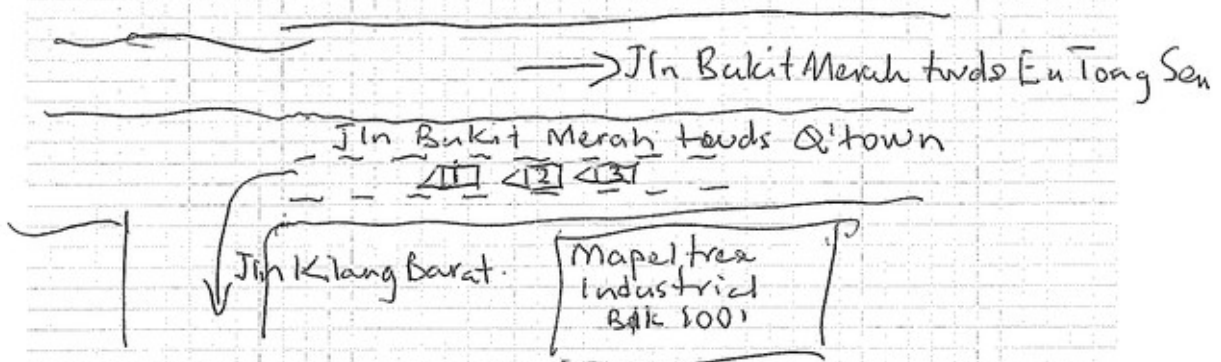 → Jln Bukit Merah twds Eu Tong Sen
Jln Bukit Merah towds Q'town
1 2 3
Jln Kilang Barat.
Mapeltree
Industrial
Blk 1001